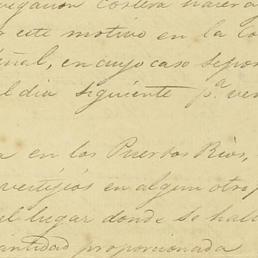 vegacion costera hacer a
este motivo en la co
eñal, en cuyo caso se pon
l dia siguiente p.ª ver
a en los Puertos Rios,
vertijios en algun otro p
el lugar donde se hall
antidad proporcionada